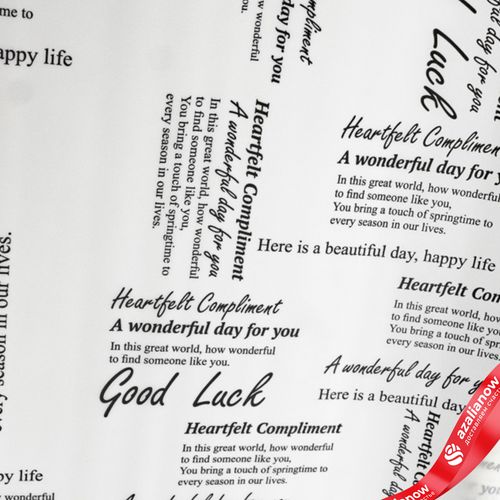 me to
appy life
every season in our lives.
py life
you.
how wonderful
day for you
Compliment
Luck
day for you
Heartfelt Compliment
A wonderful day for you
In this great world,
to find someone like you, how wonderful
You bring a touch of springtime to
every season in our lives.
Heartfelt Compliment
A wonderful day for y
In this great world, how wonderful
to find someone like you,
You bring a touch of springtime to
every season in our lives.
Here is a beautiful day, happy life
Heartfelt Compliment
A wonderful day for you
In this great world, how wonderful
to find someone like you.
Good Luck
Heartfelt Compliment
In this great world, how wonderful
to find someone like you,
You bring a touch of springtime to
every season in our lives.
Heartfelt Com
In this great world, how
to find someone like you
You bring a touch of spr
every season in our lives.
A wonderful day for y
Here is a beautiful day
Heartfelt Com
A wonderful
azalianow
доставляем счасть